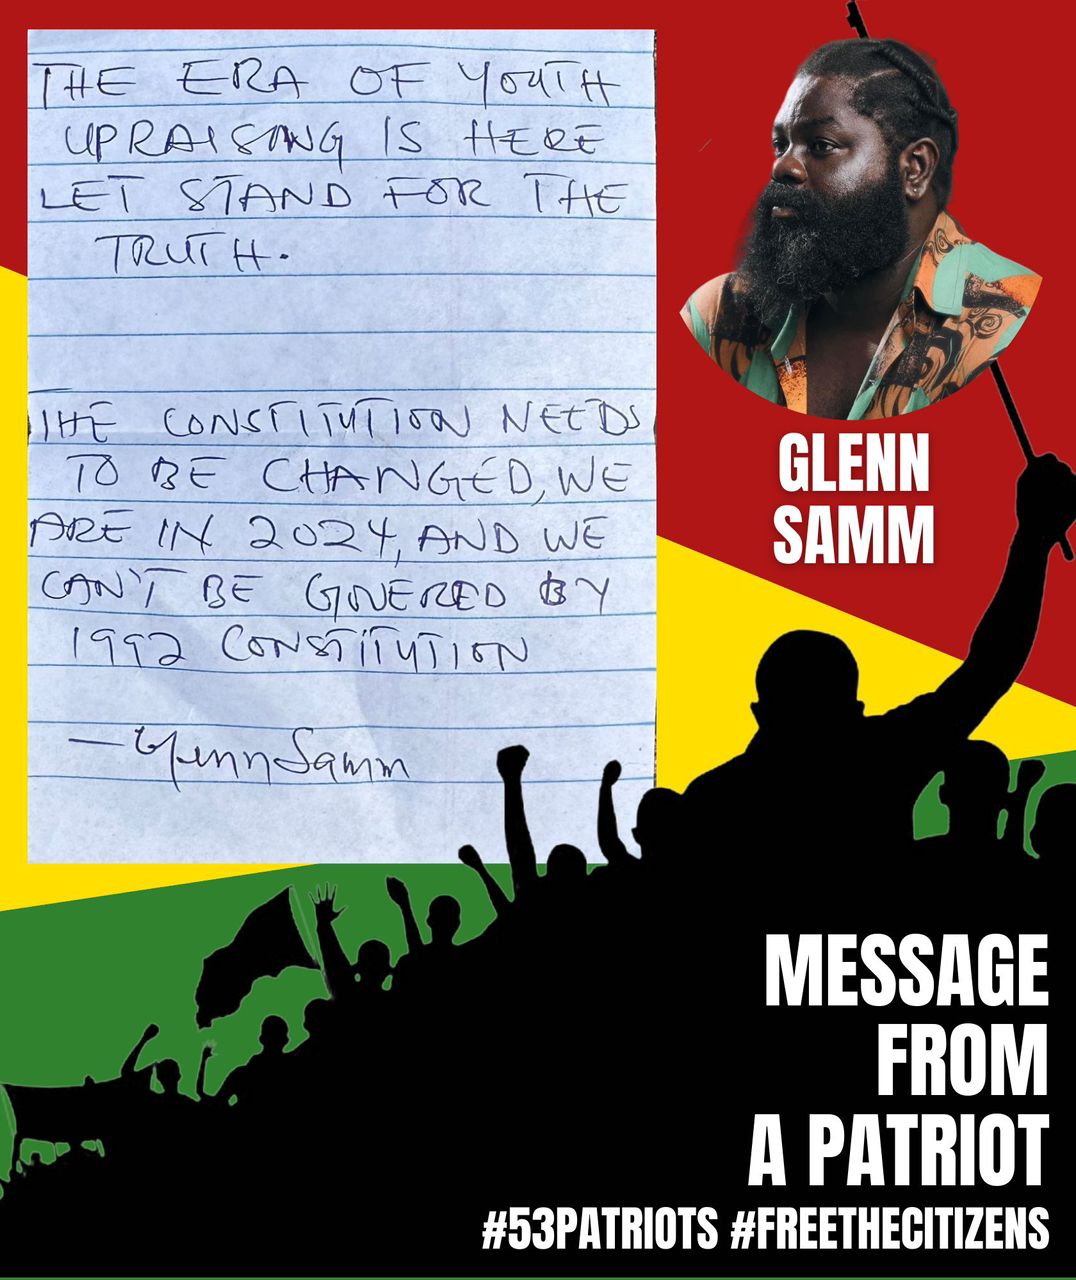 THE ERA OF YOUTH
UPRAISING IS HERE
LET STAND FOR THE
TRUTH.
THE CONSTITUTION NEEDS
TO BE CHANGED, WE
ARE IN 2024, AND WE
CAN'T BE GOVERED BY
1992 CONSTITUTION
— Glenn Samm
GLENN
SAMM
MESSAGE
FROM
A PATRIOT
#53PATRIOTS #FREETHECITIZENS